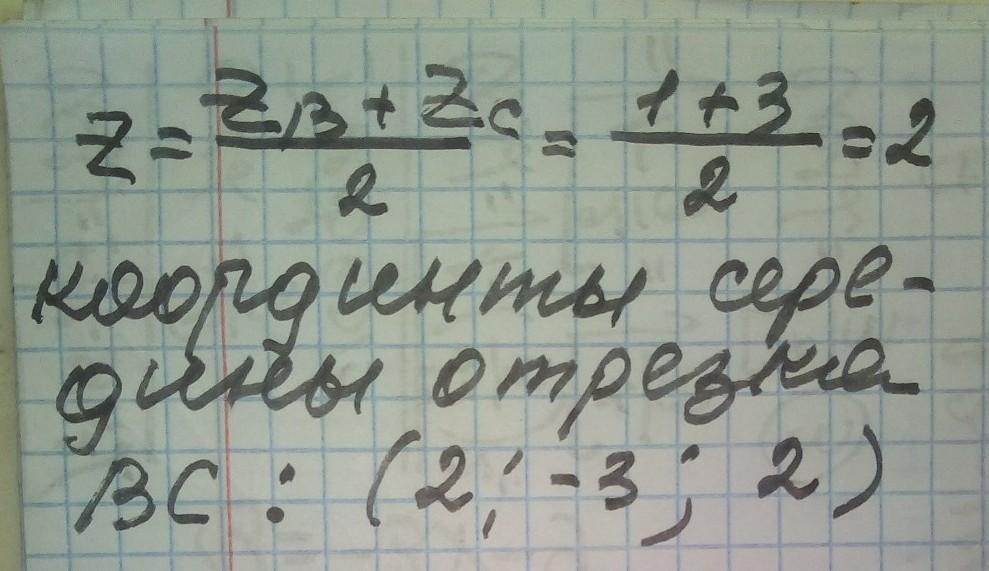 z = (z_B + z_C)/2 = (1 + 3)/2 = 2
координты сере-
дины отрезка
BC : (2; -3; 2)